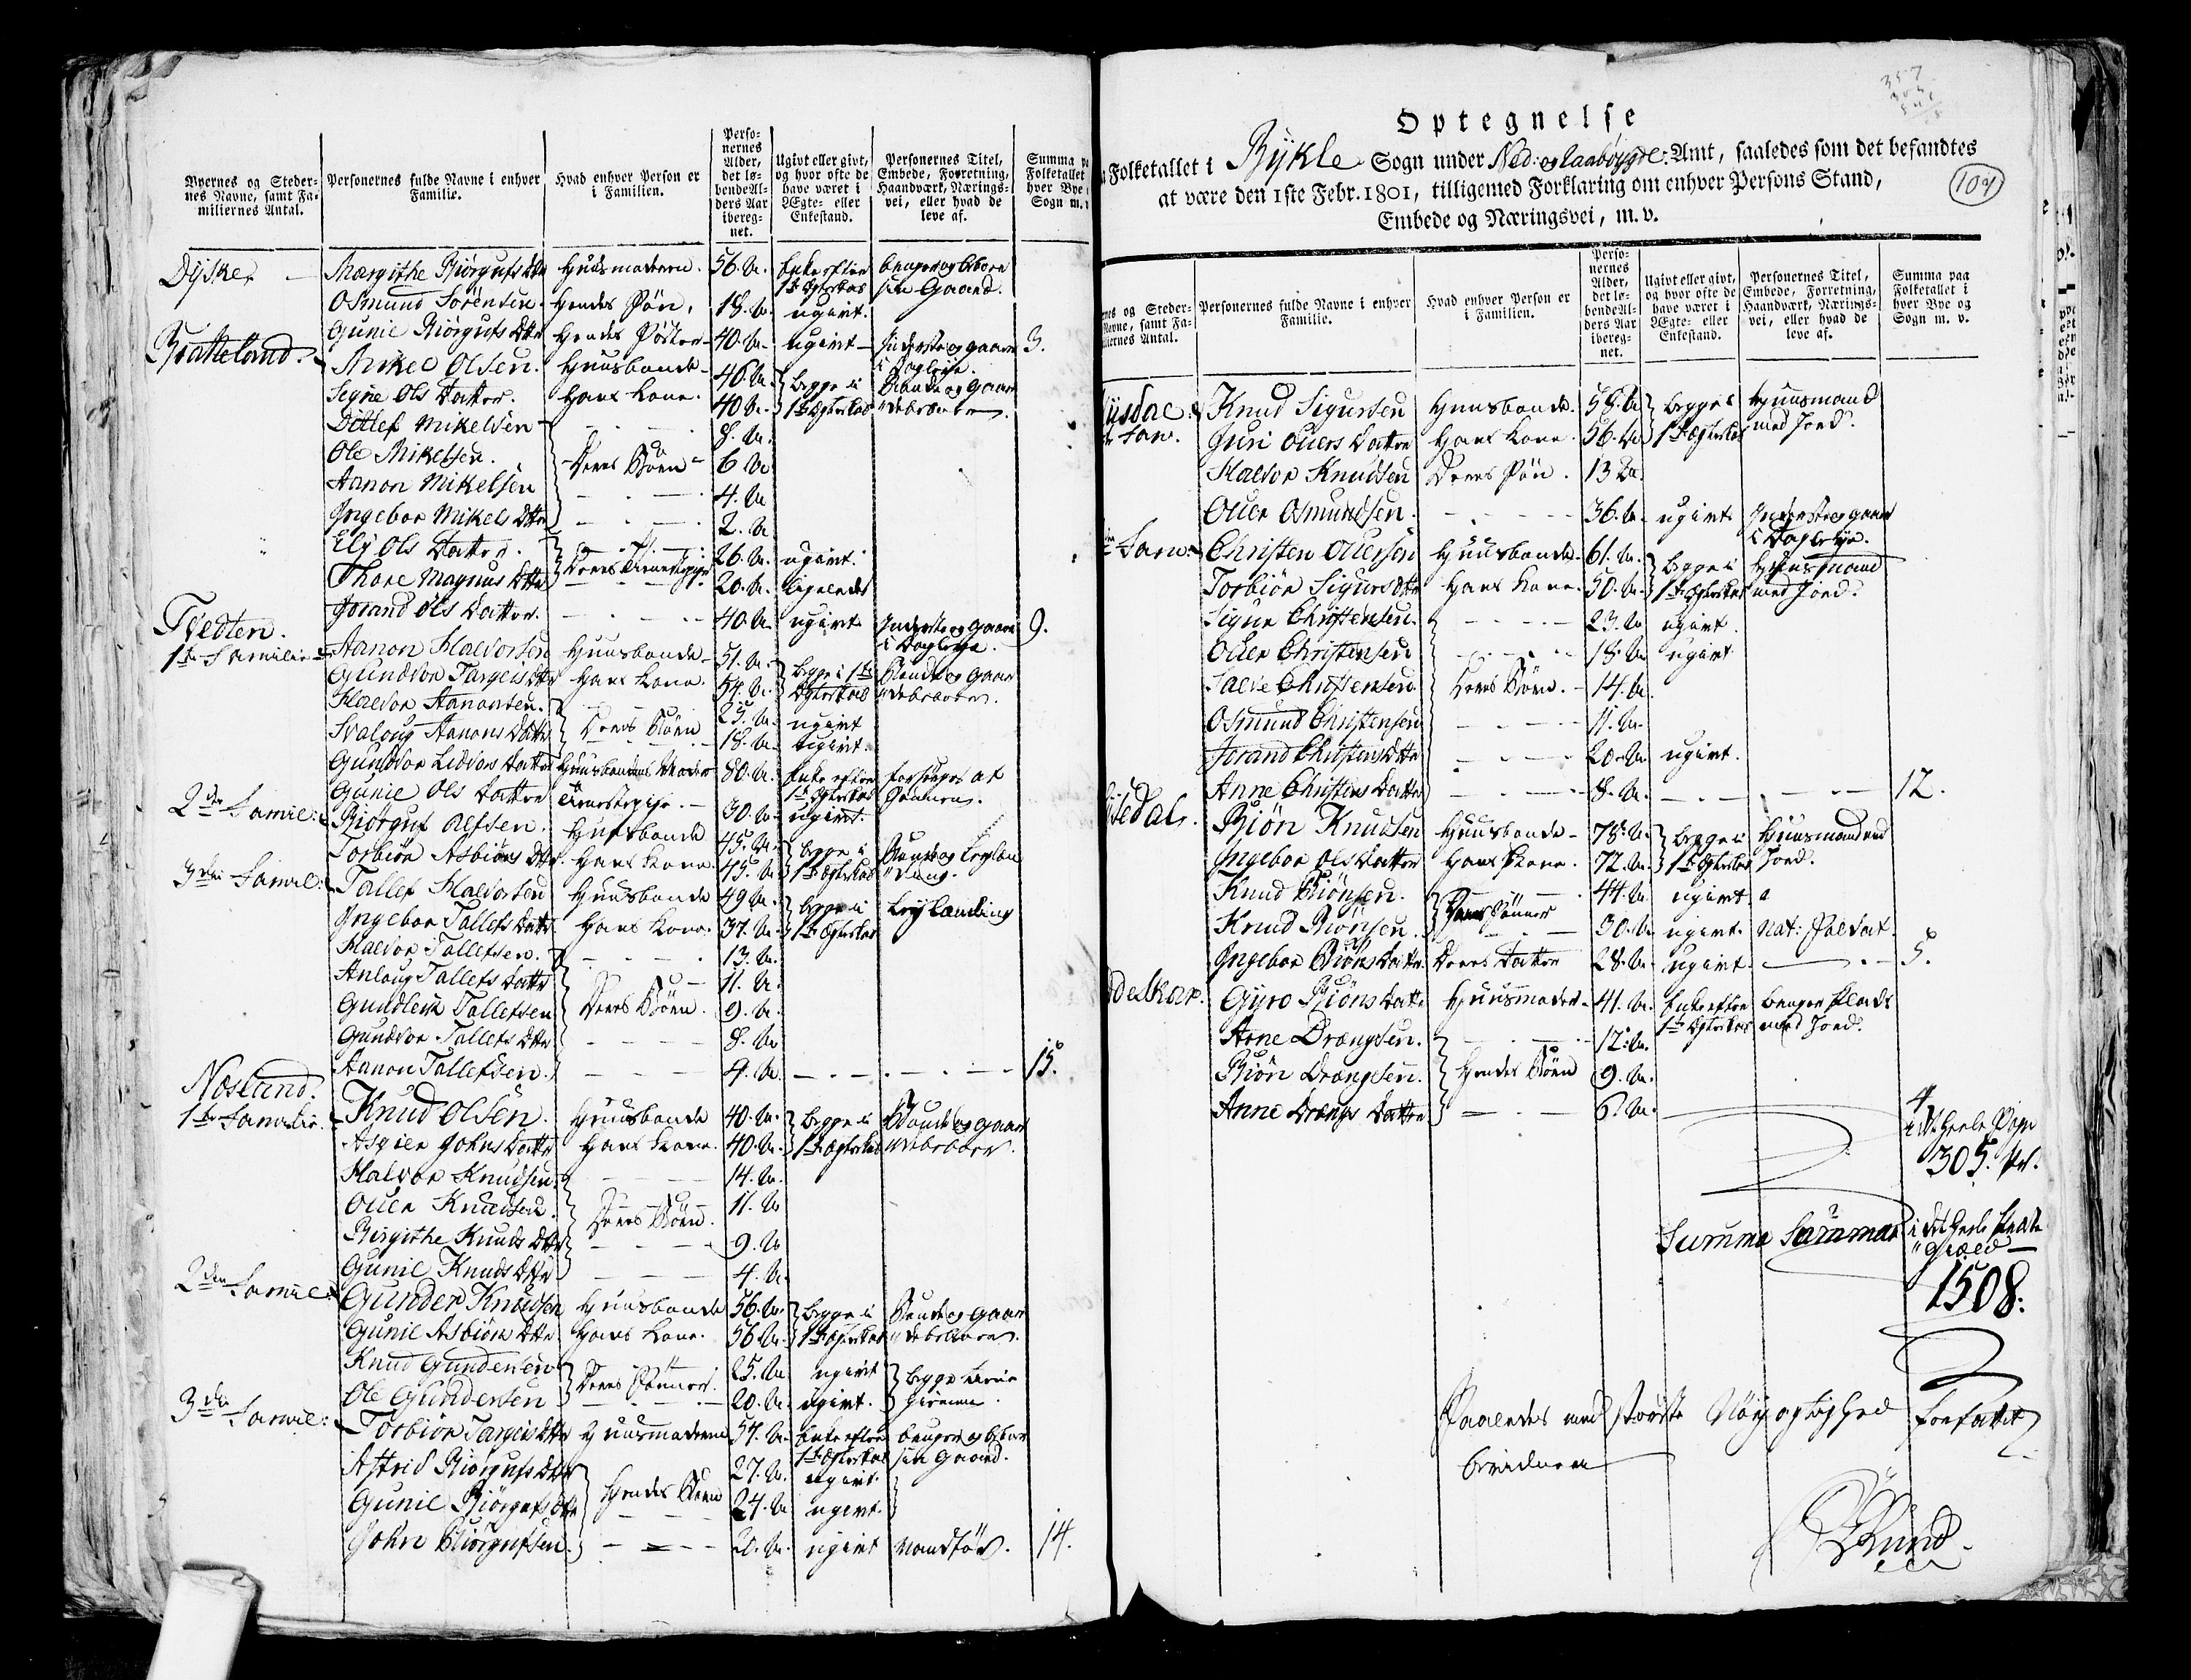 Byernes og Steder-
nes Navne, samt Fa-
miliernes Antal.
Personernes fulde Navne i enhver
Familie.
Hvad enhver Person er
i Familien.
Perso-
nernes
Alder,
det lø-
bende Al-
ders Aar
ibereg-
net.
Ugivt eller givt,
og hvor ofte de
have været i
Ægte- eller
Enkestand.
Personernes Titel,
Embede, Forretning,
Haandværk, Nærings-
vei, eller hvad de
leve af.
Summa
Folketallet
hver Bye
Sogn m.
Dÿske Margithe Biörgufs Dttr Huusmoderen. 56. Enke efter 1te Ægteskab bruger og beboer sin Gaard.
Osmund Sörensen. Hendes Sön. 18. ugivt.
Gunil Biörgufs Dttr Hendes Söster 40. ugivt 3.
Bratteland. Mikel Olsen. Huusbonde 46. begge i 1te Ægteskab Bonde og Gaardbeboer.
Signe Ols Datter. Hans Kone. 40.
Ditlef Mikelsen 8.
Ole Mikelsen. Deres Börn 6
Aanon Mikelsen 4.
Ingebor Mikels Dttr 2.
Elj Ols Datter. 26. ugivt.
Thore Magnus Dttr Deres Tienestepige 20. ligeledes
Jorand Ols Datter. 40. ugivt 9.
Tvedten.
1te Familie Aanon Halvorsen Huusbonde 51. begge i 1te Ægteskab Bonde og Gaardbeboer.
Gundvor Targeis Dttr Hans Kone. 54.
Halvor Aanonsen. 25. ugivt
Svaloug Aanons Dattr Deres Börn 18. ugivt.
Gundvor Lidvors Datter Huusbondens Moder 80. Enke efter 1te Ægteskab forsörges af Sönnen.
Gunil Ols Datter Tienestepige. 30. ugivt.
2den Famil: Biörguf Olfsen. Huusbonde 45. begge i 1te Ægteskab
Torbiör Asbiörns Dttr. Hans Kone. 45.
3die Famil: Tallef Halvorsen Huusbonde 49 begge i 1te Ægteskab Leÿlænding
Ingebor Tallefs Dattr Hans Kone. 37.
Halvor Tallefsen. 13.
Anloug Tallefs Dattr 11.
Gundleik Tallefsen Deres Börn. 9.
Gundvor Tallefs Dttr 8.
Aanon Tallefsen. 4. 15.
Næsland.
1te Familie. Knud Olsen. Huusbonde 40. begge i 1te Ægteskab Bonde og Gaardbeboer.
Asgier Johns Dattr Hans Kone. 40.
Halvor Knudsen. 14.
Ouer Knudsen. Deres Börn. 11.
Birgithe Knuds Dttr 9.
Gunil Knuds Dttr 4.
2den Famil: Gunder Knudsen Huusbonde 56. begge i 1te Ægteskab Bonde og Gaardbeboer.
Gunil Asbiörns Dttr Hans Kone. 56.
Knud Gundersen Deres Sönner. 25. ugivt
Ole Gundersen 20. ugivt.
3die Famil: Torbiör Targeis Dttr Huusmoderen 54. Enke efter 1te Ægteskab bruger og beboer sin Gaard.
Astrid Biörgufs Dttr 27. ugivt.
Gunil Biörgufs Dttr Hendes Börn 24. ugivt.
John Biörgufsen. 20. ugivt 14.
Optegnelse
Folketallet i Bÿkle Sogn under Ned: og Raabøygde: Amt, saaledes som det befandtes
at være den 1ste Febr. 1801, tilligemed Forklaring om enhver Persons Stand,
Embede og Næringsvei, m. v.
104
Personernes fulde Navne i enhver
Familie.
Hvad enhver Person er
i Familien.
Perso-
nernes
Alder,
det lø-
bende Al-
ders Aar
ibereg-
net.
Ugivt eller givt,
og hvor ofte de
have været i
Ægte- eller
Enkestand.
Personernes Titel,
Embede, Forretning,
Haandværk, Nærings-
vei, eller hvad de
leve af.
Summa paa
Folketallet i
hver Bye og
Sogn m. v.
Knud Sigursen Huusbonde. 58. begge i 1te Ægteskab Huusmand med Jord.
Juri Ouers Datter Hans Kone. 56.
Halvor Knudsen Deres Sön. 13
Ouer Osmundsen. 36. ugivt
Fam: Christen Ouersen Huusbonde. 61. begge i 1te Ægteskab Huusmand med Jord.
Torbiör Sigurs Dttr Hans Kone. 50.
Sigur Christensen. 23. ugivt.
Ouer Christensen 18. ugivt.
Salve Christensen. Deres Börn. 14.
Osmund Christensen 11.
Jorand Christens Dttr 20. ugivt.
Anne Christens Datter 8. 12.
Biön Knudsen Huusbonde 78. begge i 1te Ægteskab Huusmand med Jord.
Ingebor Ols Datter Hans Kone. 72.
Knud Biönsen. 44. ugivt
Knud Biönsen. Deres Sönner 30. ugivt. Nat: Soldat.
Ingebor Biöns Dattr. Deres Datter 28. ugivt. 5.
Gÿro Biöns Dattr Huusmoder 41. Enke efter 1te Ægteskab bruger Plads med Jord.
Arne Drengsen. 12.
Biön Drengsen. Hendes Börn 9.
Anne Drengs Datter 6. 4
305.
Summa Summar i det heele Præste-
gield
1508.
Saaledes med störste Nöÿagtighed forfattet
bevidner